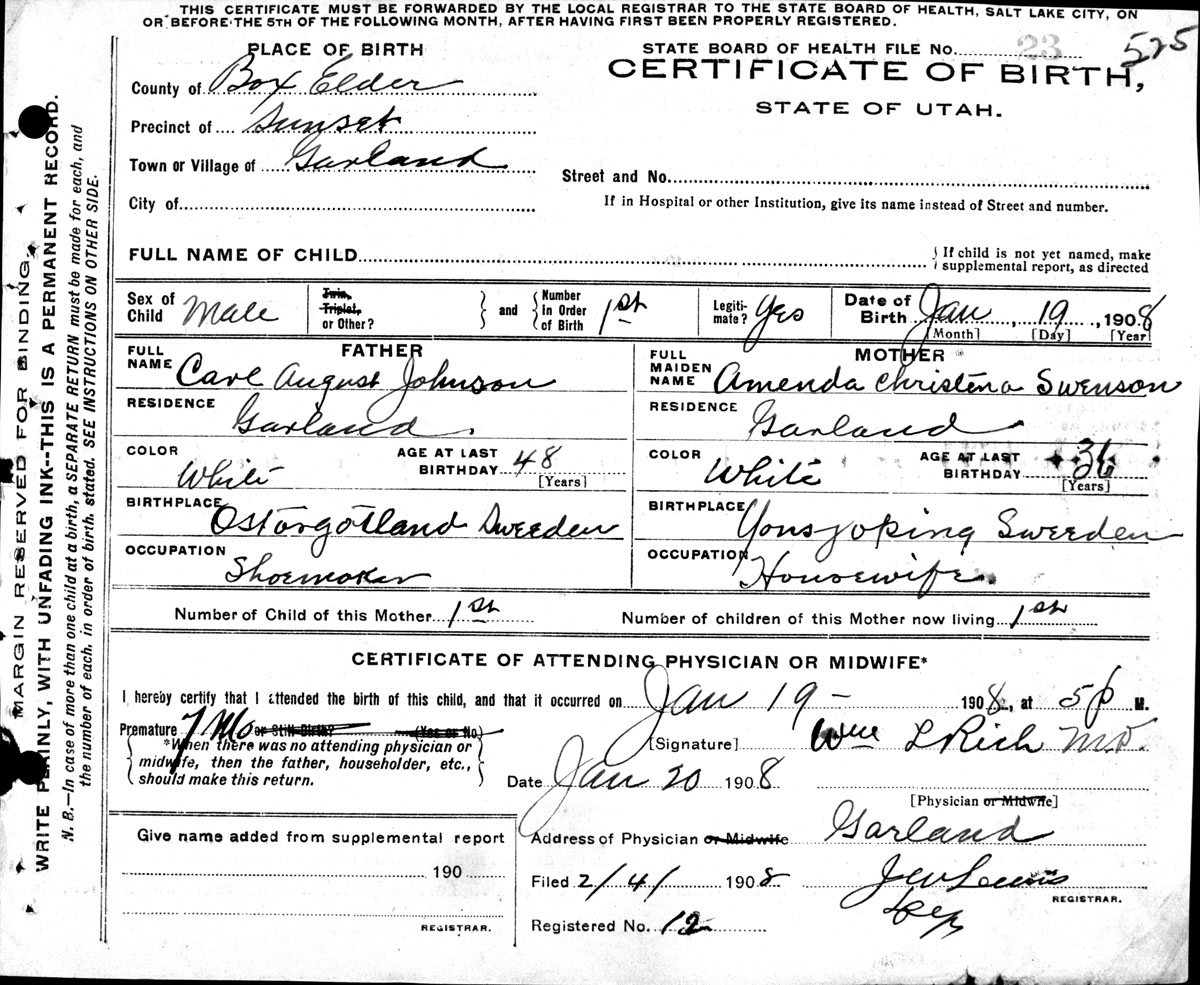 THIS CERTIFICATE MUST BE FORWARDED BY THE LOCAL REGISTRAR TO THE STATE BOARD OF HEALTH, SALT LAKE CITY, ON
OR BEFORE THE 5TH OF THE FOLLOWING MONTH, AFTER HAVING FIRST BEEN PROPERLY REGISTERED.
PLACE OF BIRTH
STATE BOARD OF HEALTH FILE No. 23 525
County of Box Elder
CERTIFICATE OF BIRTH,
STATE OF UTAH.
Precinct of Sunset
Town or Village of Garland
Street and No.
City of
If in Hospital or other Institution, give its name instead of Street and number.
FULL NAME OF CHILD
If child is not yet named, make
supplemental report, as directed
Sex of Child Male
Twin, Triplet, or Other?
and
Number in Order of Birth 1st
Legitimate? Yes
Date of Birth Jan 19, 1908
[Month] [Day] [Year]
FATHER
FULL NAME Carl August Johnson
RESIDENCE Garland
COLOR White AGE AT LAST BIRTHDAY 48 [Years]
BIRTHPLACE Ostorgotland Sweeden
OCCUPATION Shoemaker
MOTHER
FULL MAIDEN NAME Amenda Christena Swenson
RESIDENCE Garland
COLOR White AGE AT LAST BIRTHDAY 36 [Years]
BIRTHPLACE Yonsjoping Sweeden
OCCUPATION Housewife.
Number of Child of this Mother 1st Number of children of this Mother now living 1st
CERTIFICATE OF ATTENDING PHYSICIAN OR MIDWIFE*
I hereby certify that I attended the birth of this child, and that it occurred on Jan 19 - 1908, at 5 p M.
Premature 7 Mo or Still Birth? (Yes or No)
*When there was no attending physician or
midwife, then the father, householder, etc.,
should make this return.
[Signature] Wm L Rich M.D.
Date Jan 20 1908
[Physician or Midwife]
Give name added from supplemental report
190
REGISTRAR.
Address of Physician or Midwife Garland
Filed 2/4/ 1908 J W Lewis
REGISTRAR.
Dep
Registered No. 12
MARGIN RESERVED FOR BINDING.
WRITE PLAINLY, WITH UNFADING INK--THIS IS A PERMANENT RECORD.
N. B.—In case of more than one child at a birth, a SEPARATE RETURN must be made for each, and
the number of each, in order of birth, stated. SEE INSTRUCTIONS ON OTHER SIDE.